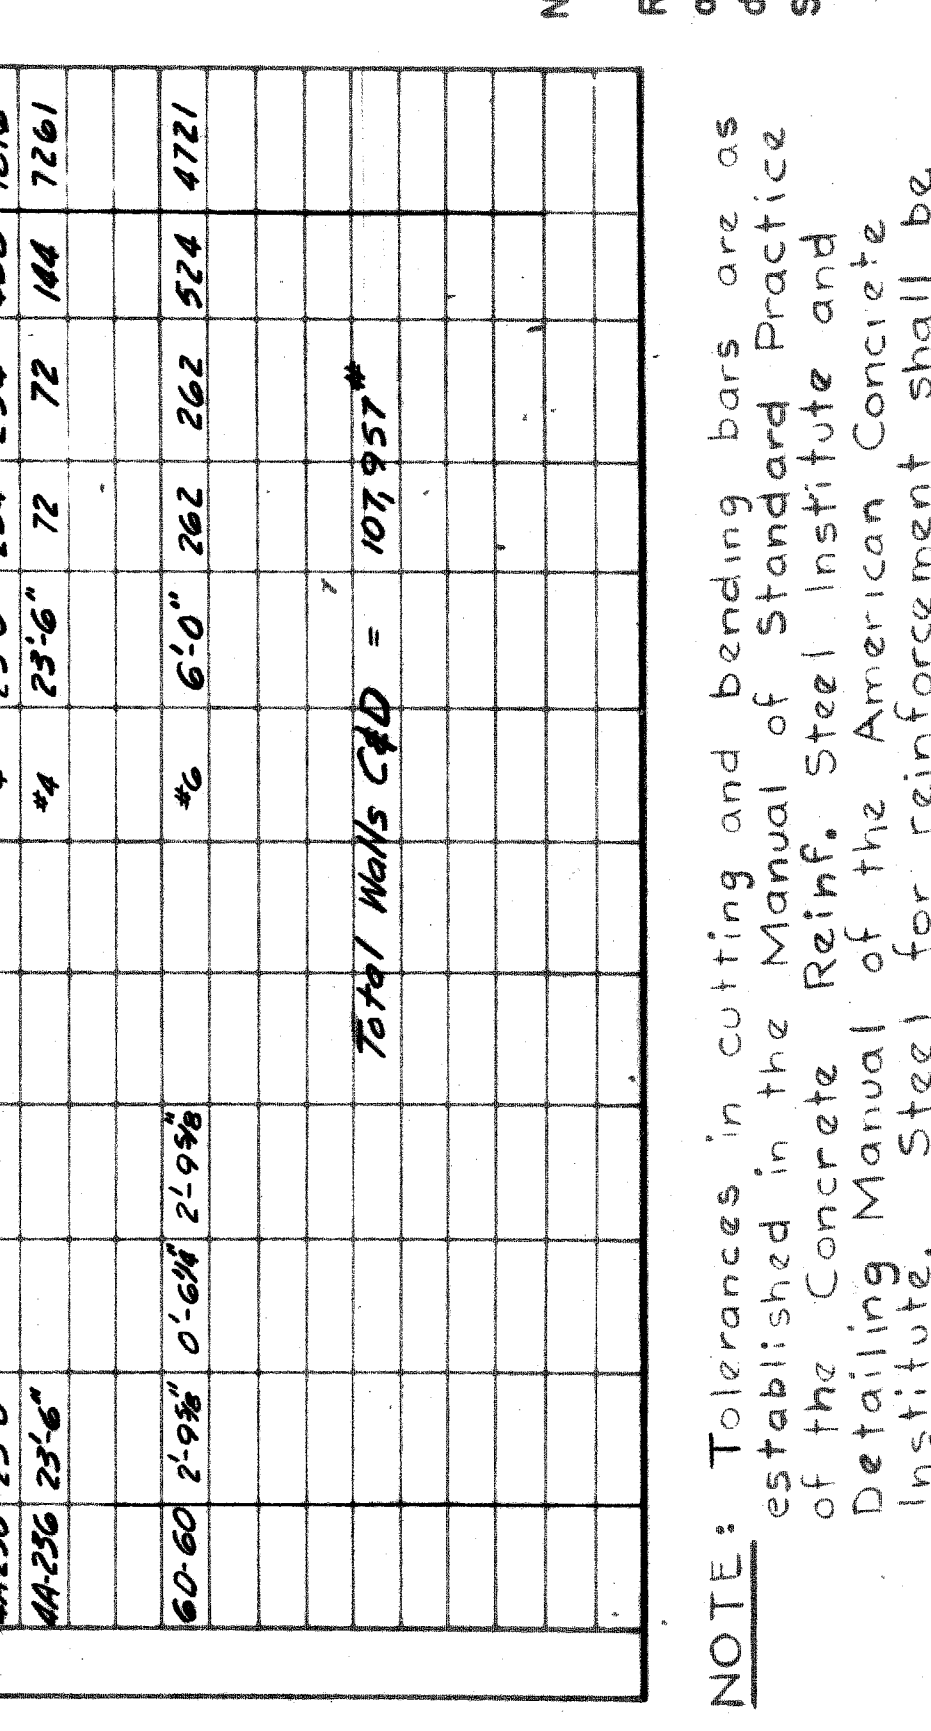 4A-236 23'-6" #4 23'-6" 72 72 144 7261
6D-60 2'-9⅝" 0'-6¼" 2'-9⅝" #6 6'-0" 262 262 524 4721
Total Walls C&D = 107,957#
NOTE: Tolerances in cutting and bending bars are as
established in the Manual of Standard Practice
of the Concrete Reinf. Steel Institute and
Detailing Manual of the American Concrete
Institute. Steel for reinforcement shall be